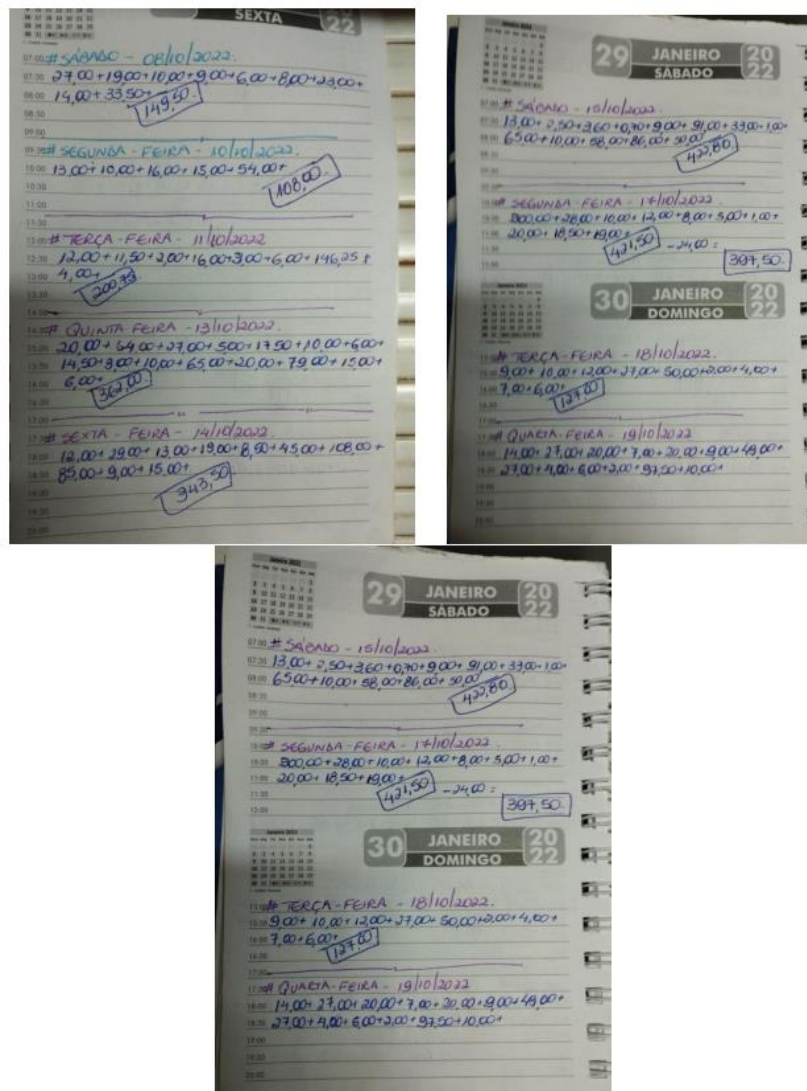 SEXTA 22
07:00 # SÁBADO - 08/10/2022.
07:30 27,00+19,00+10,00+9,00+6,00+8,00+23,00+
08:00 14,00+33,50+
149,50
08:30
09:00
09:30 # SEGUNDA-FEIRA - 10/10/2022.
10:00 13,00+10,00+16,00+15,00+54,00+
108,00
10:30
11:00
11:30
# TERÇA-FEIRA - 11/10/2022
12,00+11,50+2,00+16,00+3,00+6,00+146,25+
4,00+
200,75
# QUINTA FEIRA - 13/10/2022.
20,00+64,00+27,00+5,00+17,50+10,00+6,00+
14,50+3,00+10,00+65,00+20,00+79,00+15,00+
6,00+
362,00
# SEXTA-FEIRA - 14/10/2022.
12,00+29,00+13,00+19,00+8,50+45,00+108,00+
85,00+9,00+15,00+
343,50
29 JANEIRO 20 22
SÁBADO
07:00 # SÁBADO - 15/10/2022.
07:30 13,00+2,50+3,60+0,70+9,00+91,00+33,00+1,00+
08:00 65,00+10,00+58,00+86,00+50,00
422,80
# SEGUNDA-FEIRA - 17/10/2022.
300,00+28,00+10,00+12,00+8,00+5,00+1,00+
20,00+18,50+19,00+
421,50 -24,00 =
397,50
30 JANEIRO 20 22
DOMINGO
# TERÇA-FEIRA - 18/10/2022.
9,00+10,00+12,00+27,00+50,00+2,00+4,00+
7,00+6,00+
127,00
# QUARTA-FEIRA - 19/10/2022
14,00+27,00+20,00+7,00+20,00+9,00+49,00+
27,00+4,00+6,00+2,00+97,50+10,00+
Janeiro 2022
29 JANEIRO 20 22
SÁBADO
07:00 # SÁBADO - 15/10/2022.
07:30 13,00+2,50+3,60+0,70+9,00+91,00+33,00+1,00+
08:00 65,00+10,00+58,00+86,00+50,00
422,80
08:30
09:00
09:30
# SEGUNDA-FEIRA - 17/10/2022.
300,00+28,00+10,00+12,00+8,00+5,00+1,00+
20,00+18,50+19,00+
421,50 -24,00 =
397,50
12:00
Janeiro 2022
30 JANEIRO 20 22
DOMINGO
# TERÇA-FEIRA - 18/10/2022.
9,00+10,00+12,00+27,00+50,00+2,00+4,00+
7,00+6,00+
127,00
# QUARTA-FEIRA - 19/10/2022
14,00+27,00+20,00+7,00+20,00+9,00+49,00+
27,00+4,00+6,00+2,00+97,50+10,00+
19:00
19:30
20:00